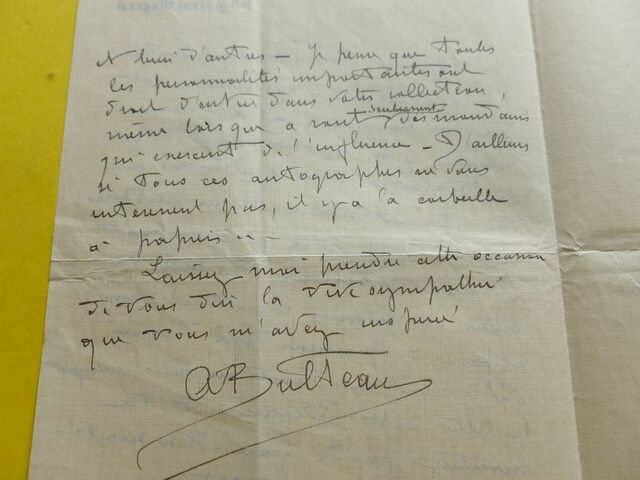 & bien d'autres — Je pense que toutes
les personnalités importantes ont
droit d'entrer dans votre collection,
même lorsque ce sont seulement des mondains
qui exercent de l'influence — D'ailleurs
si tous ces autographes ne vous
intéressent pas, il y a la corbeille
à papiers ..
Laissez moi prendre cette occasion
de vous dire la vive sympathie
que vous m'avez inspirée
ABulteau